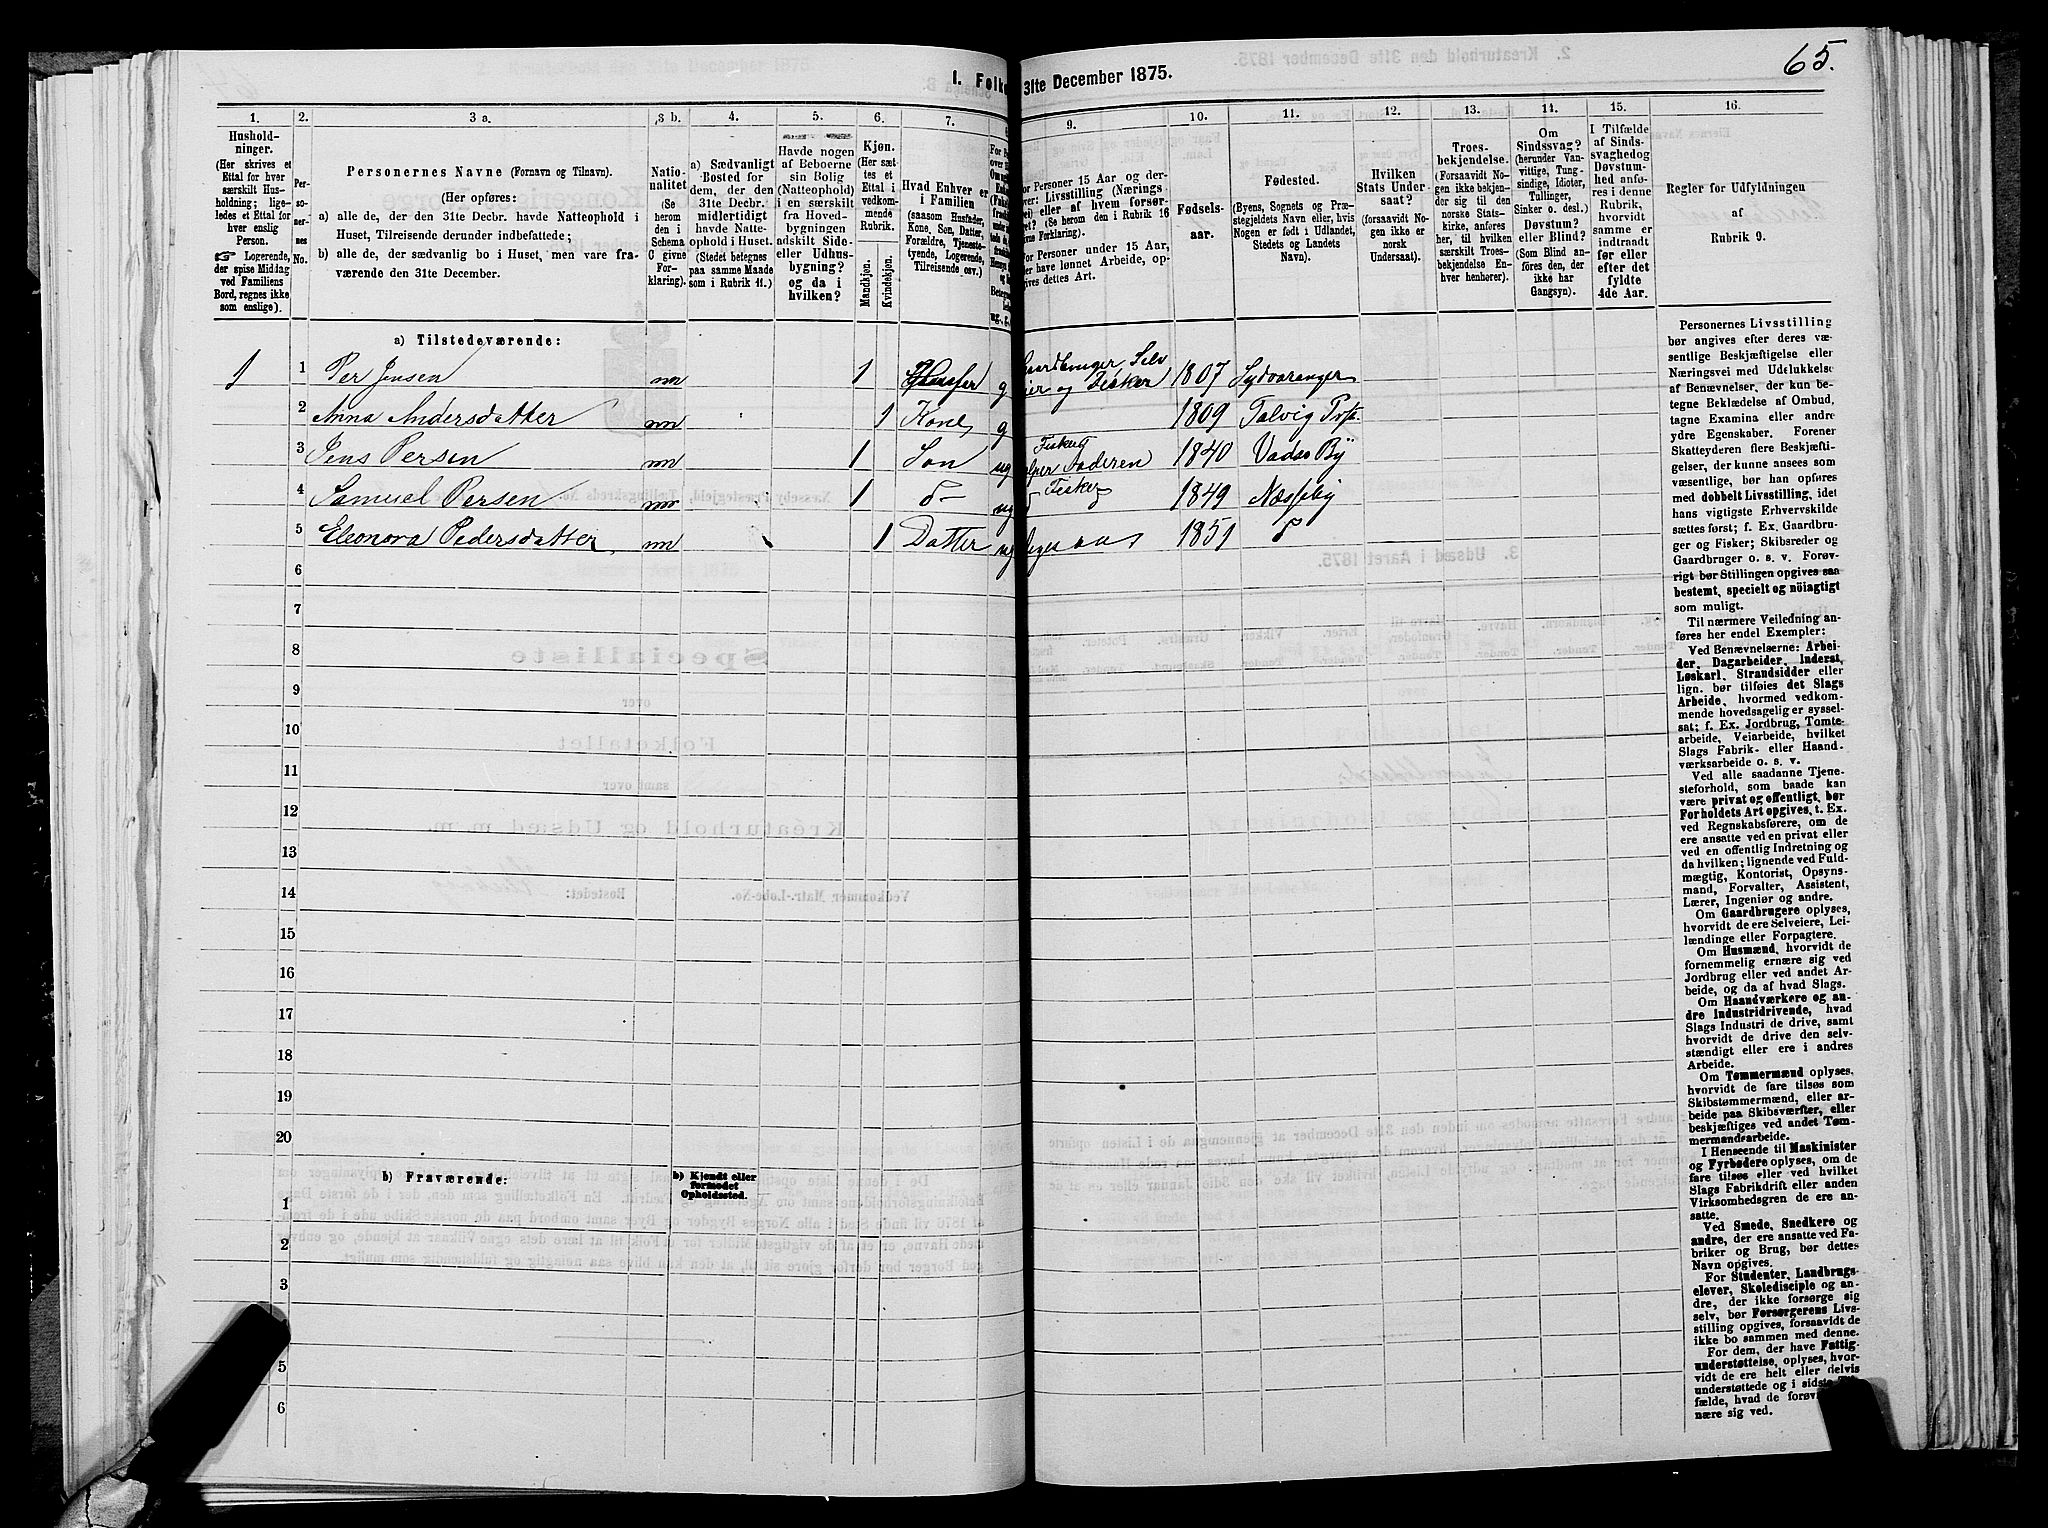 65.
I. Folke
31te December 1875.
1.
2.
3 a.
3 b.
4.
5.
6.
7.
9.
10.
11.
12.
13.
14.
15.
16.
Hushold-
ninger.
(Her skrives et
Ettal for hver
særskilt Hus-
holdning; lige-
ledes et Ettal for
hver enslig
Person.
☞ Logerende,
der spise Middag
ved Familiens
Bord, regnes ikke
som enslige).
Per-
so-
ner-
nes
No.
Personernes Navne (Fornavn og Tilnavn).
(Her opføres:
a) alle de, der den 31te Decbr. havde Natteophold i
Huset, Tilreisende derunder indbefattede;
b) alle de, der sædvanlig bo i Huset, men vare fra-
værende den 31te December.
Natio-
nalitet
(Se
herom
den i
Schema
C givne
For-
klaring).
a) Sædvanligt
Bosted for
dem, der den
31te Decbr.
midlertidigt
havde Natte-
ophold i Huset.
(Stedet betegnes
paa samme Maade
som i Rubrik 11.)
Havde nogen
af Beboerne
sin Bolig
(Natteophold)
i en særskilt
fra Hoved-
bygningen
adskilt Side-
eller Udhus-
bygning?
og da i
hvilken?
Kjøn.
(Her sæt-
tes et
Ettal i
vedkom-
mende
Rubrik.
Mandkjøn.
Kvindekjøn.
Hvad Enhver er
i Familien
(saasom Husfader,
Kone, Søn, Datter,
Forældre, Tjeneste-
tyende, Logerende,
Tilreisende osv.)
or Personer 15 Aar og der-
ver: Livsstilling (Nærings
vei) eller af hvem forsør-
get? (Se herom den i Rubrik 16
givne Forklaring).
For Personer under 15 Aar,
der have lønnet Arbeide, op-
gives dettes Art.
Fødsels-
aar.
Fødested.
(Byens, Sognets og Præ-
stegjeldets Navn eller, hvis
Nogen er født i Udlandet,
Stedets og Landets
Navn).
Hvilken
Stats Under-
saat?
(forsaavidt No-
gen ikke er
norsk
Undersaat).
Troes-
bekjendelse.
(Forsaavidt No-
gen ikke bekjen-
der sig til den
norske Stats-
kirke, anføres
her, til hvilken
særskilt Troes-
bekjendelse En-
hver henhører).
Om
Sindssvag?
(herunder Van-
vittige, Tung-
sindige, Idioter,
Tullinger,
Sinker o. desl.)
Døvstum?
eller Blind?
(Som Blind an-
føres den, der
ikke har
Gangsyn).
I Tilfælde
af Sinds-
svaghedog
Døvstum-
hed anfø-
res i denne
Rubrik,
hvorvidt
samme er
indtraadt
før eller
efter det
fyldte
4de Aar.
Regler for Udfyldningen
af
Rubrik 9.
a) Tilstedeværende:
1 1 Per Jensen nn 1 Husfar g Gaardbruger Selv
eier og Fisker 1807 Sydvaranger
2 Anna Andersdatter nn 1 Kone g 1809 Talvig Prst.
3 Jens Persen nn 1 Søn ug Fisker
hjælper Faderen 1840 Vadsø By
4 Samuel Persen nn 1 d- ug Fisker 1849 Næsseby
5 Eleonora Pedersdatter nn 1 Datter ug 1851
6
7
8
9
10
11
12
13
14
15
16
17
18
19
20
b) Fraværende:
b) Kjendt eller
formodet
Opholdssted.
1
2
3
5
6
Personernes Livsstilling
bør angives efter deres væ-
sentlige Beskjæftigelse eller
Næringsvei med Udelukkelse
af Benævnelser, der kun be-
tegne Beklædelse af Ombud,
tagne Examina eller andre
ydre Egenskaber. Forener
Skatteyderen flere Beskjæfti-
gelser, der kunne ansees som
væsentlige, bør han opføres
med dobbelt Livsstilling, idet
hans vigtigste Erhvervskilde
sættes først; f. Ex. Gaardbru-
ger og Fisker; Skibsreder og
Gaardbruger o. s. v. Forøv-
rigt bør Stillingen opgives saa
bestemt, specielt og nöiagtigt
som muligt.
Til nærmere Veiledning an-
føres her endel Exempler:
Ved Benævnelserne: Arbei-
der, Dagarbeider, Inderst,
Løskarl, Strandsidder eller
lign. bør tilføies det Slags
Arbeide, hvormed vedkom-
mende hovedsagelig er syssel-
sat; f. Ex. Jordbrug, Tomte-
arbeide, Veiarbeide, hvilket
Slags Fabrik- eller Haand-
værksarbeide o. s. v.
Ved alle saadanne Tjene-
steforhold, som baade kan
være privat og offentligt, bør
Forholdets Art opgives, t. Ex.
ved Regnskabsførere, om de
ere ansatte ved en privat eller
ved en offentlig Indretning og
da hvilken; lignende ved Fuld-
mægtig, Kontorist, Opsyns-
mand, Forvalter, Assistent,
Lærer, Ingeniør og andre.
Om Gaardbrugere oplyses,
hvorvidt de ere Selveiere, Lei-
lændinge eller Forpagtere.
Om Husmænd, hvorvidt de
fornemmelig ernære sig ved
Jordbrug eller ved andet Ar-
beide, og da af hvad Slags.
Om Haandværkere og an-
dre Industridrivende, hvad
Slags Industri de drive, samt
hvorvidt de drive den selv-
stændigt eller ere i andres
Arbeide.
Om Tømmermænd oplyses,
hvorvidt de fare tilsøs som
Skibstømmermænd, eller ar-
beide paa Skibsværfter, eller
beskjæftiges ved andet Tøm-
mermandsarbeide.
I Henseende til Maskinister
og Fyrbødere oplyses, om de
fare tilsøs eller ved hvilket
Slags Fabrikdrift eller anden
Virksomhedsgren de ere an-
satte.
Ved Smede, Snedkere og
andre, der ere ansatte ved Fa-
briker og Brug, bør dettes
Navn opgives.
For Studenter, Landbrugs-
elever, Skoledisciple og an-
dre, der ikke forsørge sig
selv, bør Forsørgerens Livs-
stilling opgives, forsaavidt de
ikke bo sammen med denne.
For dem, der have Fattig-
understøttelse, oplyses, hvor-
vidt de ere helt eller delvis
understøttede og i sidste
fælde, hvad de forøv
nære sig ved.